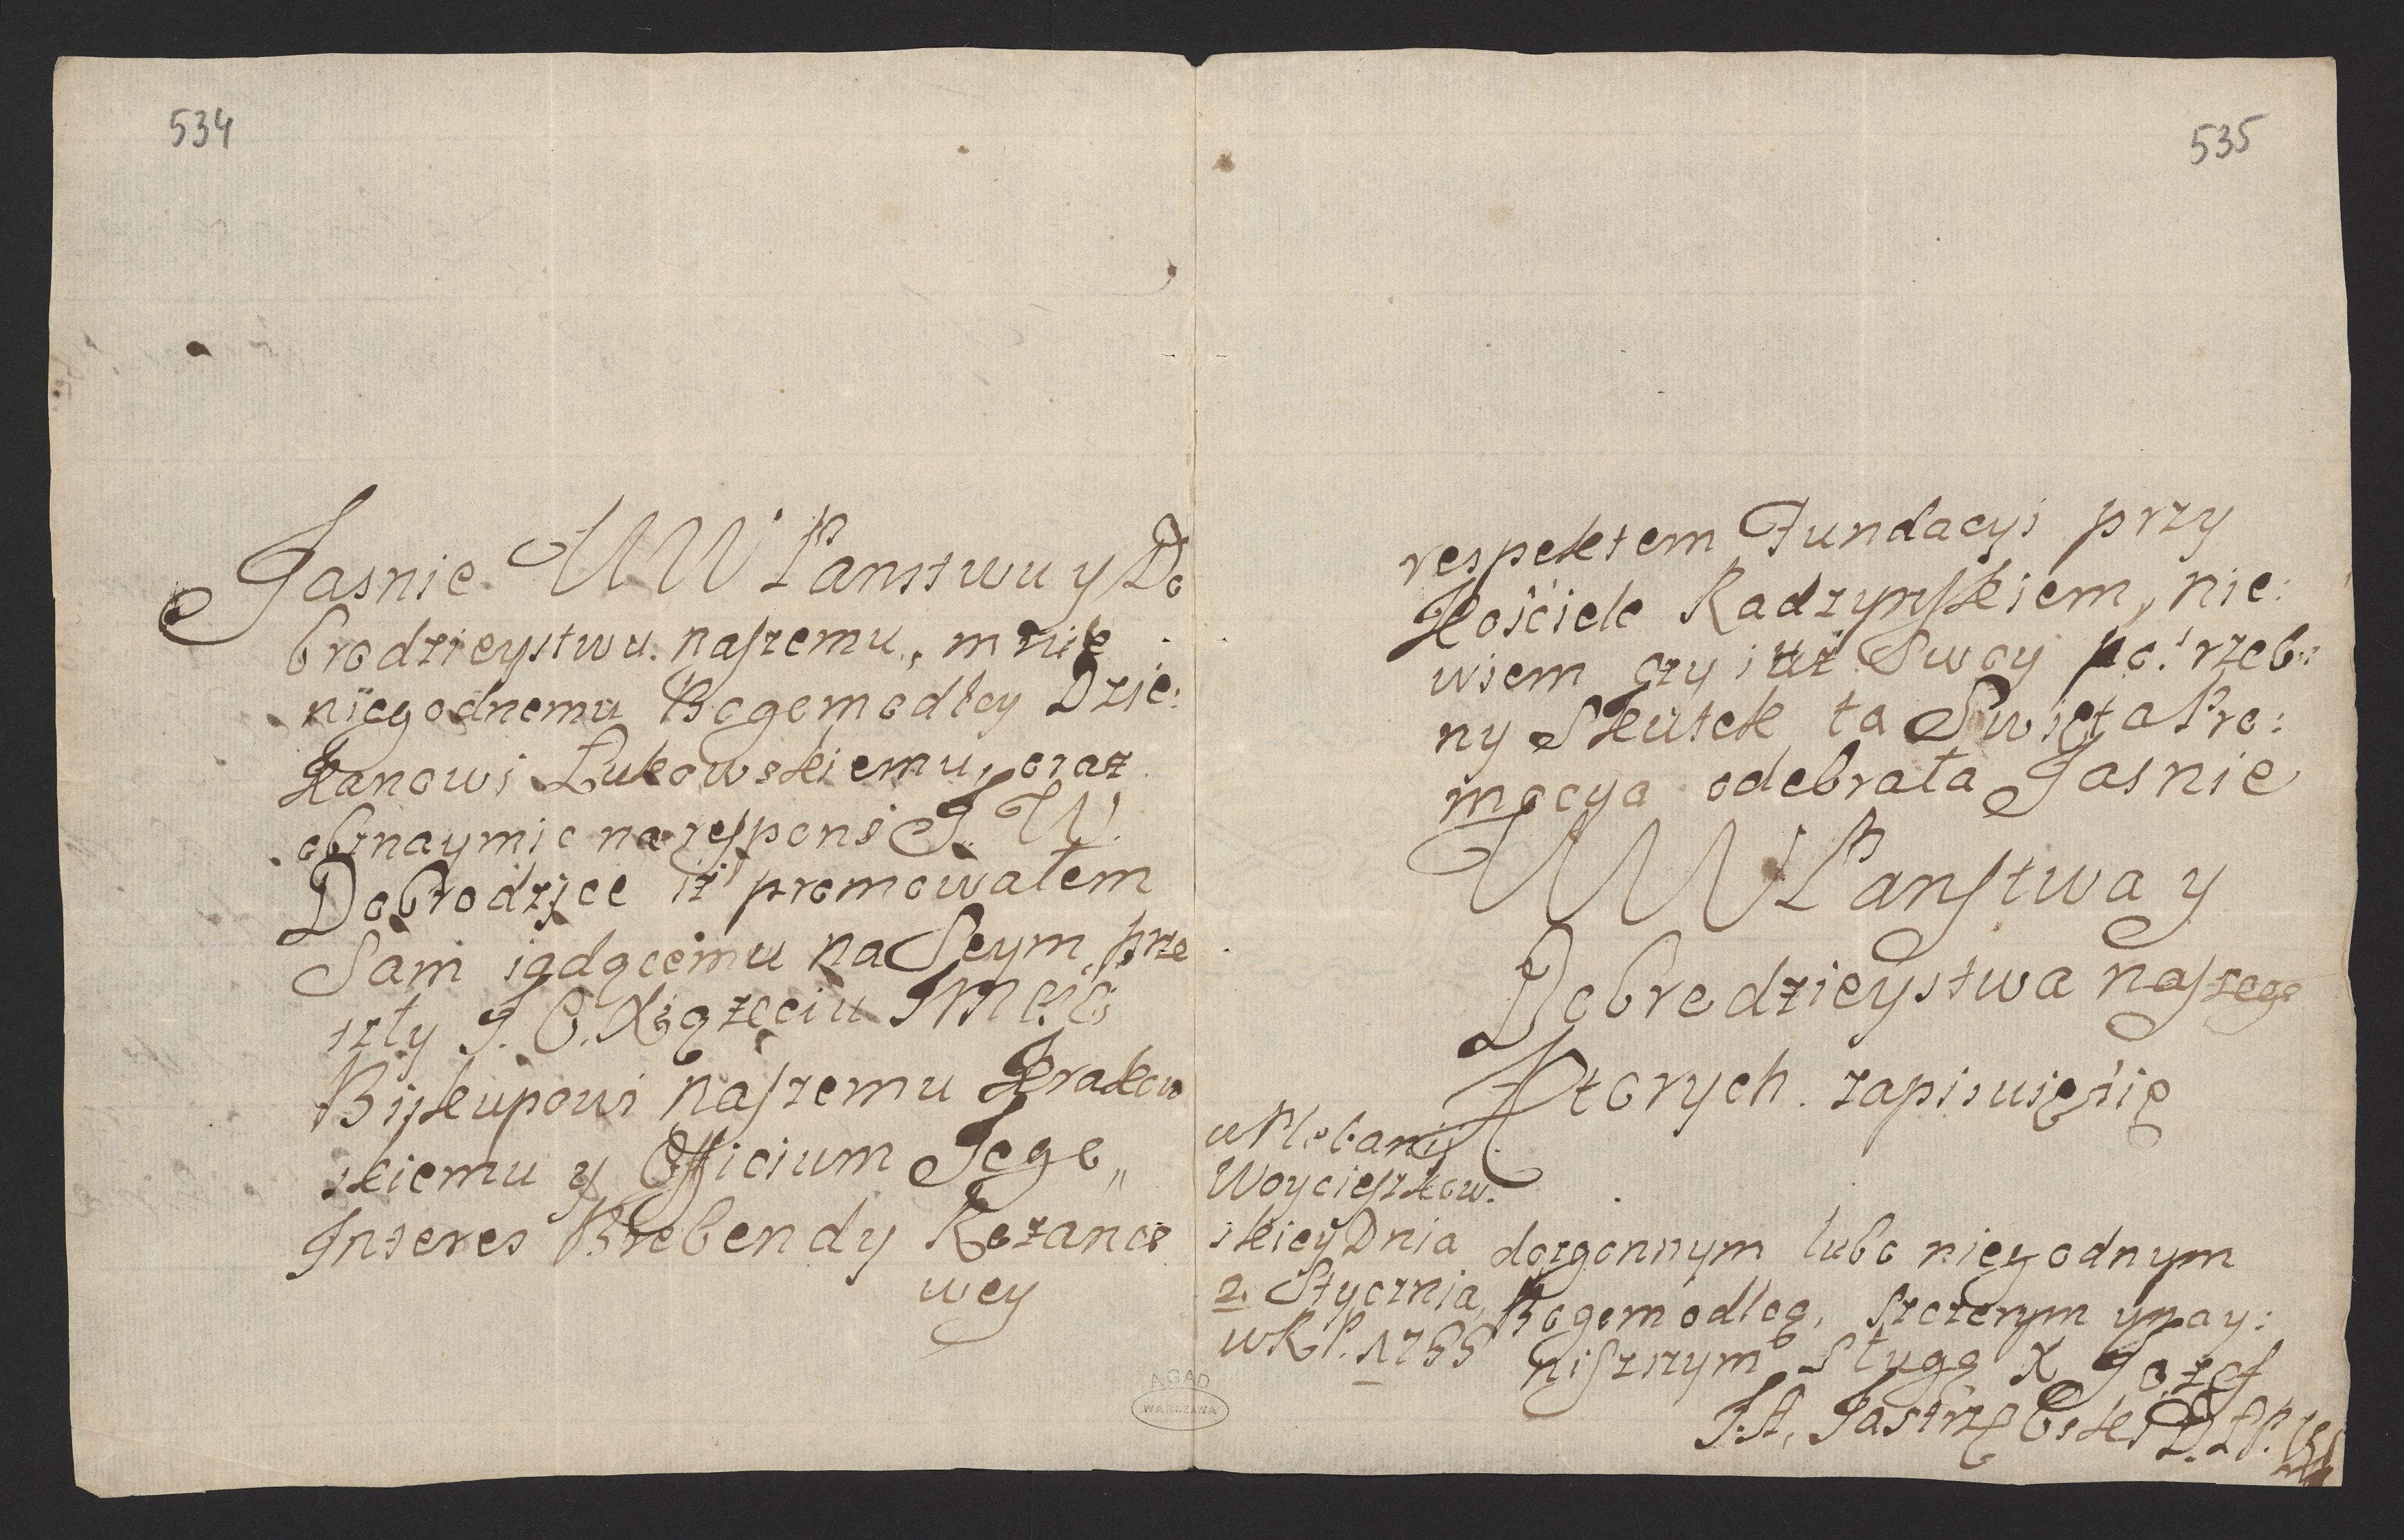 534
Jasnie WW Panstwu y Do
brodzieystwu. naszemu, mnie
niegodnemu Bogomodlcy Dzie:
kanowi Łukowskiemu, oraz
obznaymic na respons J. W.
Dobrodzice iż promowałem
Sam iądącemu na Seym prze
szły J. O. Xiążęciu JMCi
Biskupowi naszemu Krakow
skiemu y Officium Jego„
Interes Prebendy Kozano
wey
AGAD
WARSZAWA
535
respektem Fundacyi przy
Kościele Radzynskiem, nie:
wiem czy iuż Swoy potrzeb:
ny Skutek ta Swięta Pro:
mocya odebrała Jasnie
WW Panstwa y
Dobrodzieystwa naszego
Ktorych. zapisuię się
w Plebanij
Woycieszkow.
skiey Dnia
2. Stycznia,
w R P. 1755
dozgonnym lubo niegodnym
Bogomodlcą, szczerym ynay:
niszszym sługą X Jozef
Jastrzębski